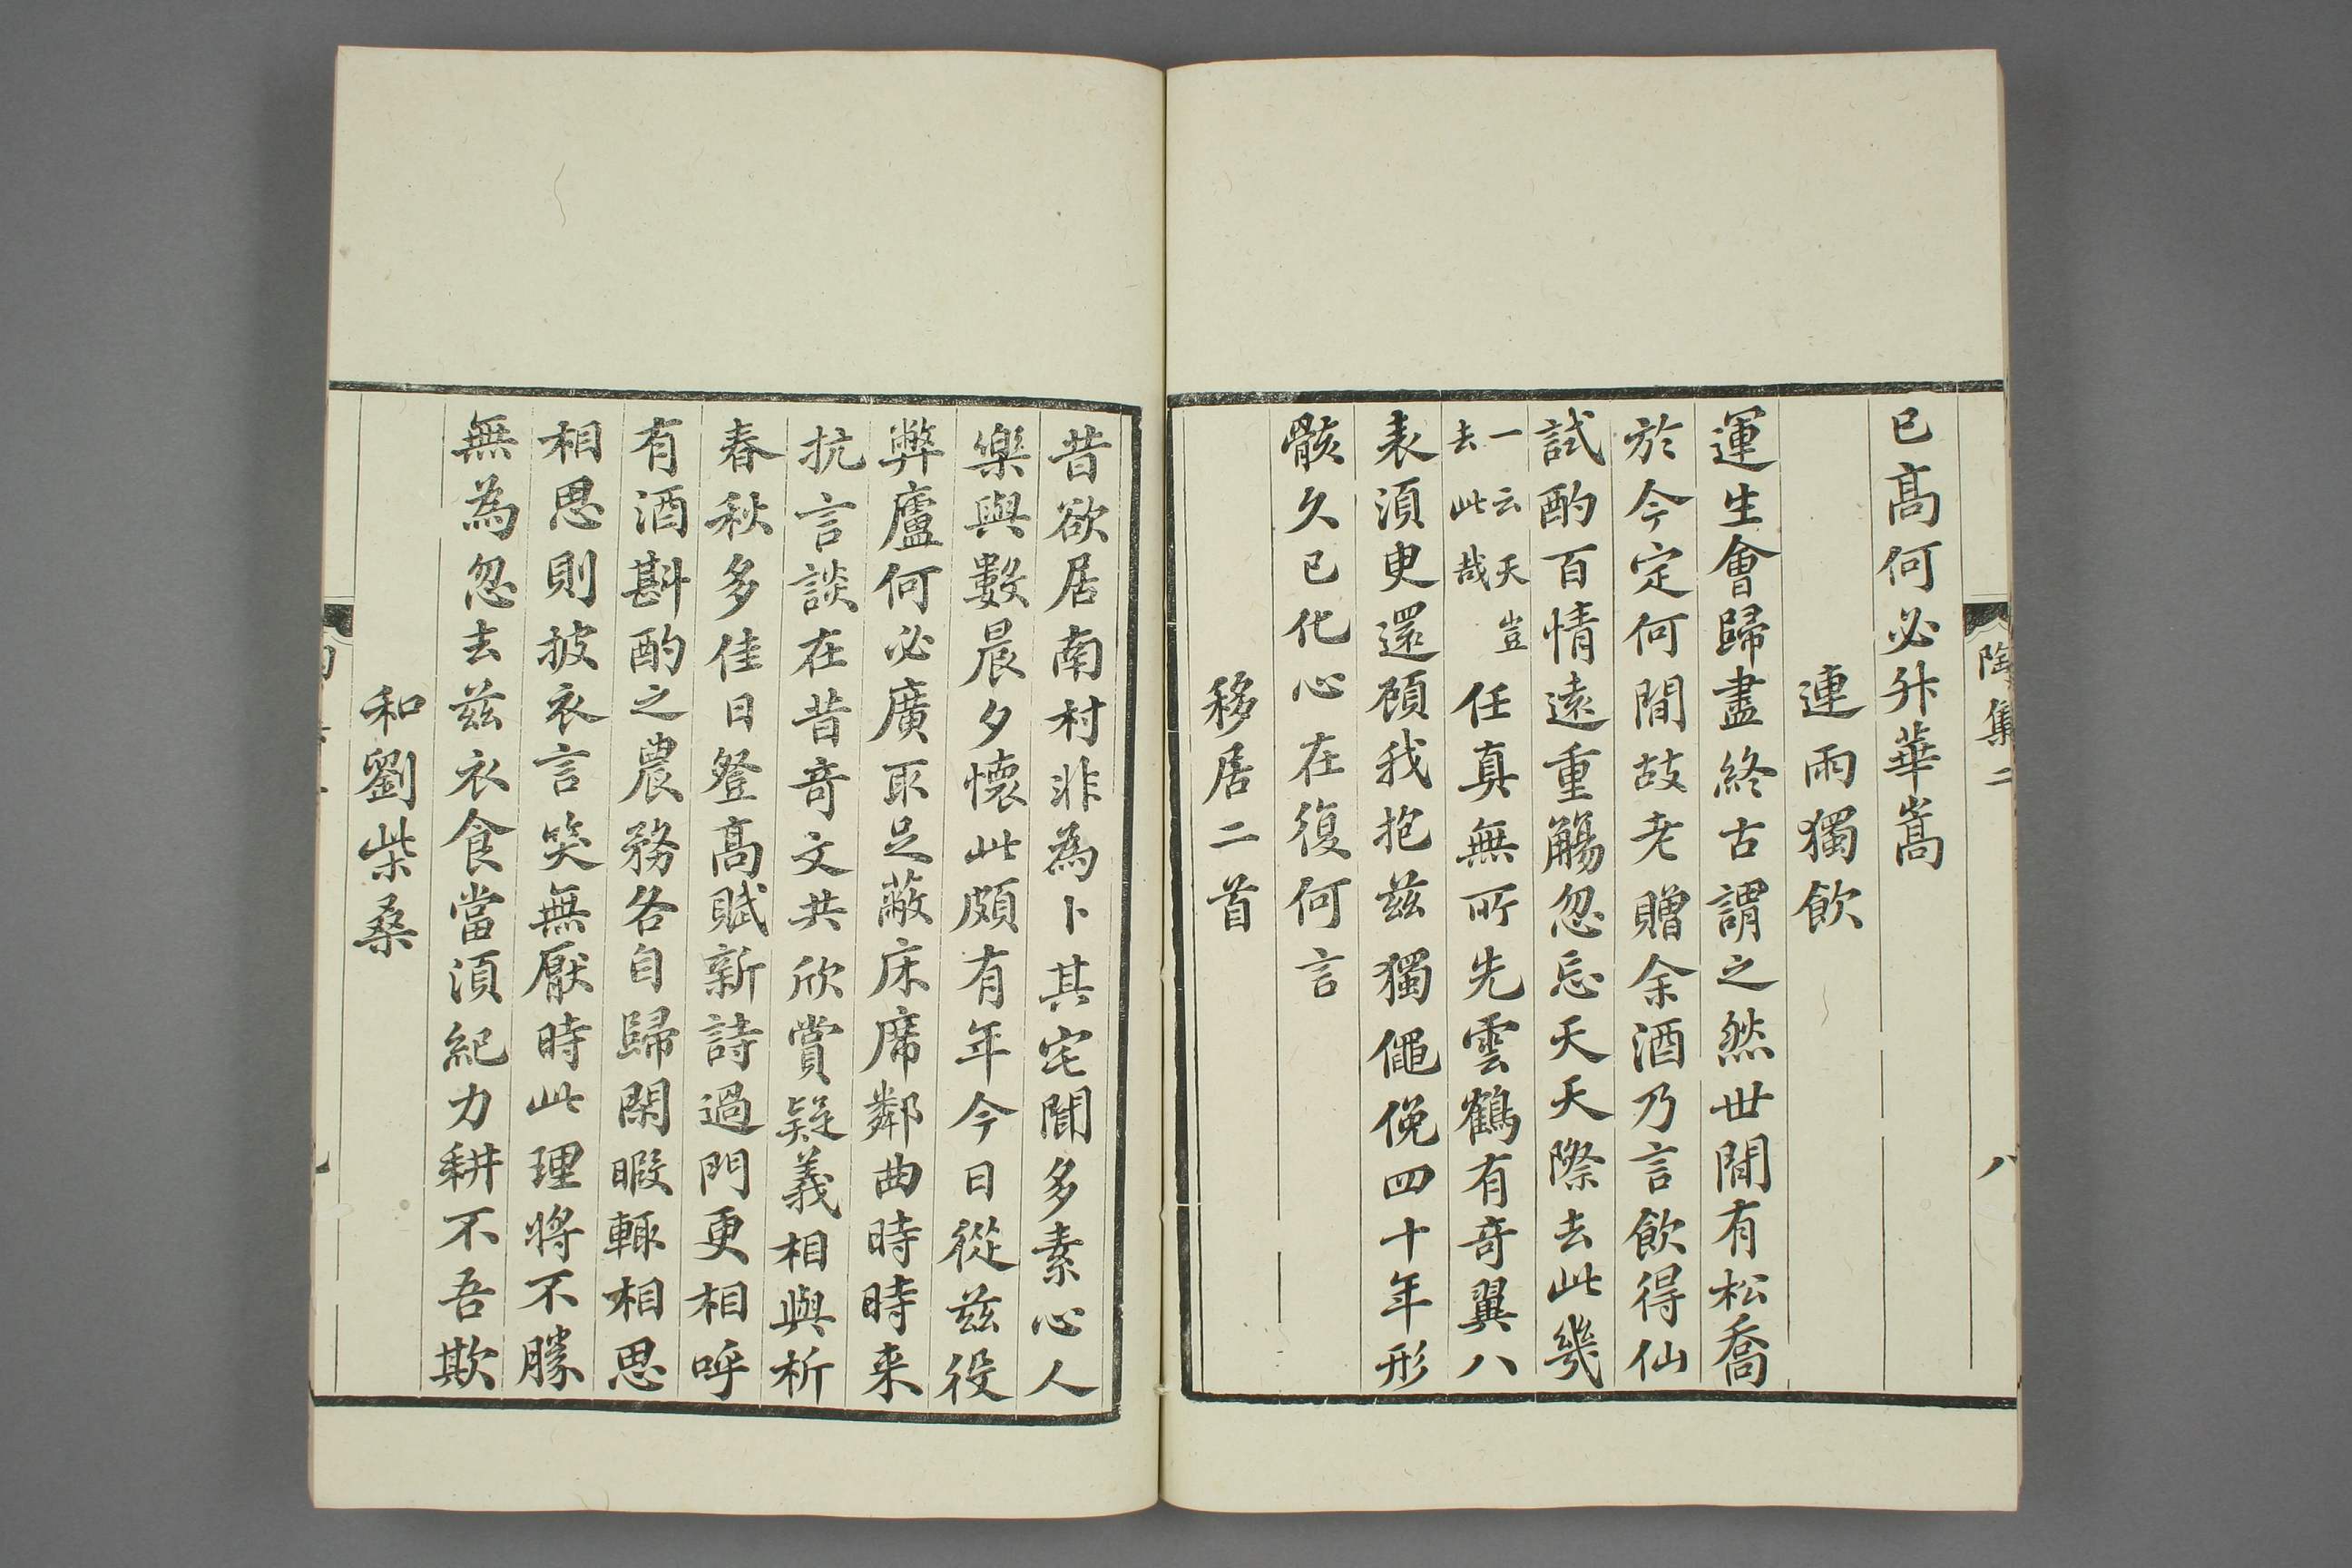 陶集二　八
已高何必升華嵩
連雨獨飲
運生會歸盡終古謂之然世間有松喬
於今定何間故老贈余酒乃言飲得仙
試酌百情遠重觴忽忘天天際去此幾
一云天豈
去此哉
任真無所先雲鶴有奇翼八
表須臾還顧我抱茲獨僶俛四十年形
骸久已化心在復何言
移居二首
昔欲居南村非為卜其宅聞多素心人
樂與數晨夕懷此頗有年今日從茲役
弊廬何必廣取足蔽床席鄰曲時時来
抗言談在昔奇文共欣賞疑義相與析
春秋多佳日登高賦新詩過門更相呼
有酒斟酌之農務各自歸閑暇輒相思
相思則披衣言笑無厭時此理將不勝
無為忽去茲衣食當須紀力耕不吾欺
和劉柴桑